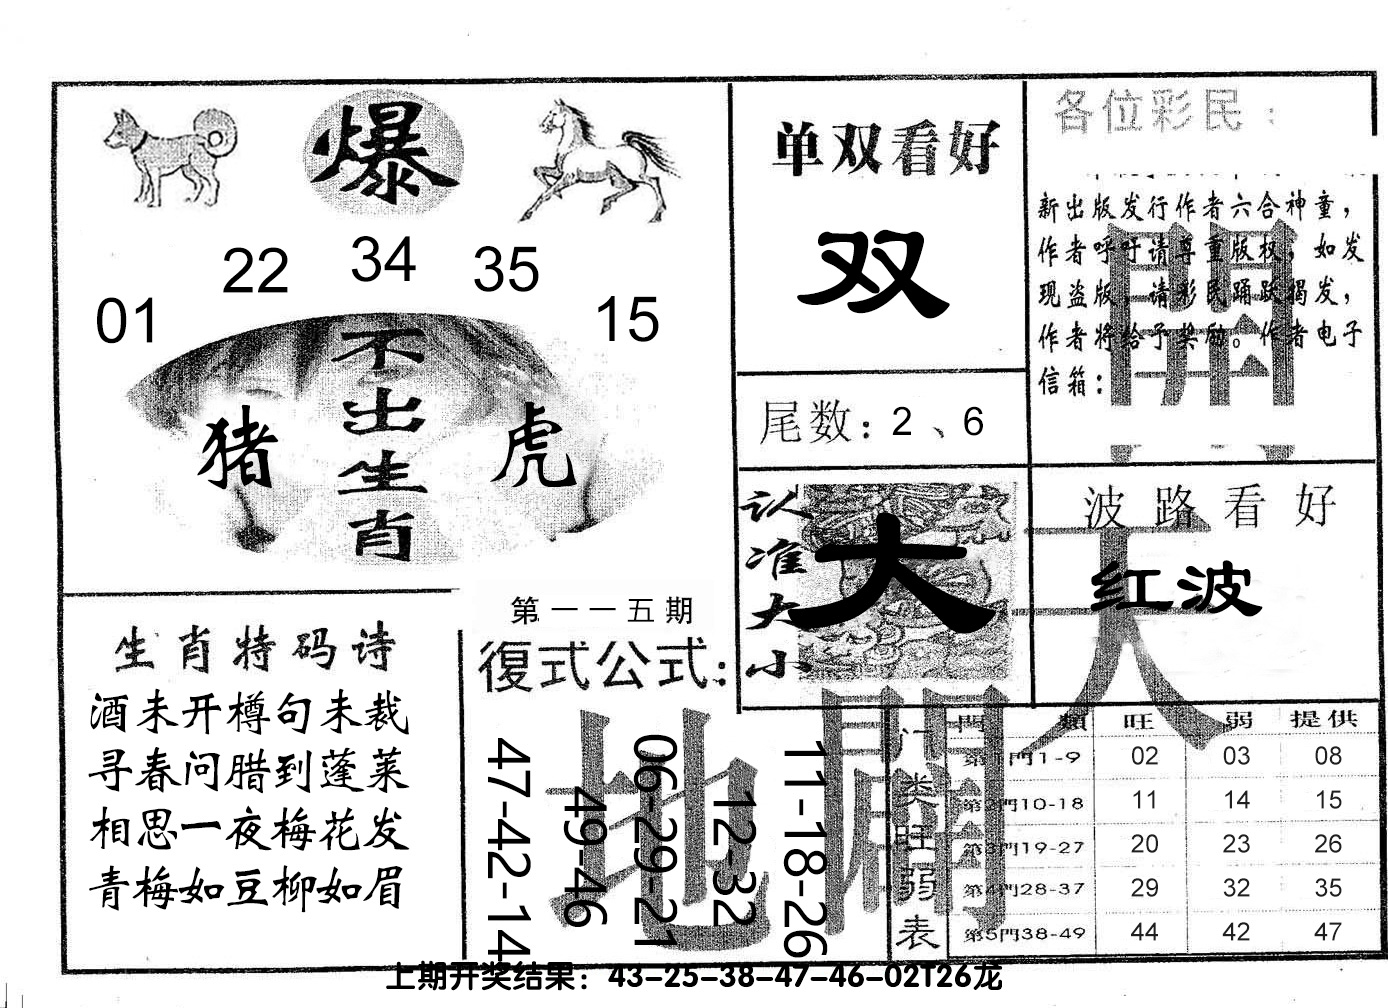 爆
01 22 34 35 15
不出生肖
猪 虎
单双看好
双
尾数：2、6
各位彩民：
新出版发行作者六合神童，
作者呼吁请尊重版权，如发
现盗版，请彩民踊跃揭发，
作者将给予奖励。作者电子
信箱：
認准大小
大
波路看好
红波
天
地
開
開
生肖特码诗
酒未开樽句未裁
寻春问腊到蓬莱
相思一夜梅花发
青梅如豆柳如眉
第一一五期
復式公式：
47-42-14
49-46
06-29-21
12-32
11-18-26
门类旺弱表
門類 旺 弱 提供
第1門1-9 02 03 08
第2門10-18 11 14 15
第3門19-27 20 23 26
第4門28-37 29 32 35
第5門38-49 44 42 47
上期开奖结果：43-25-38-47-46-02T26龙